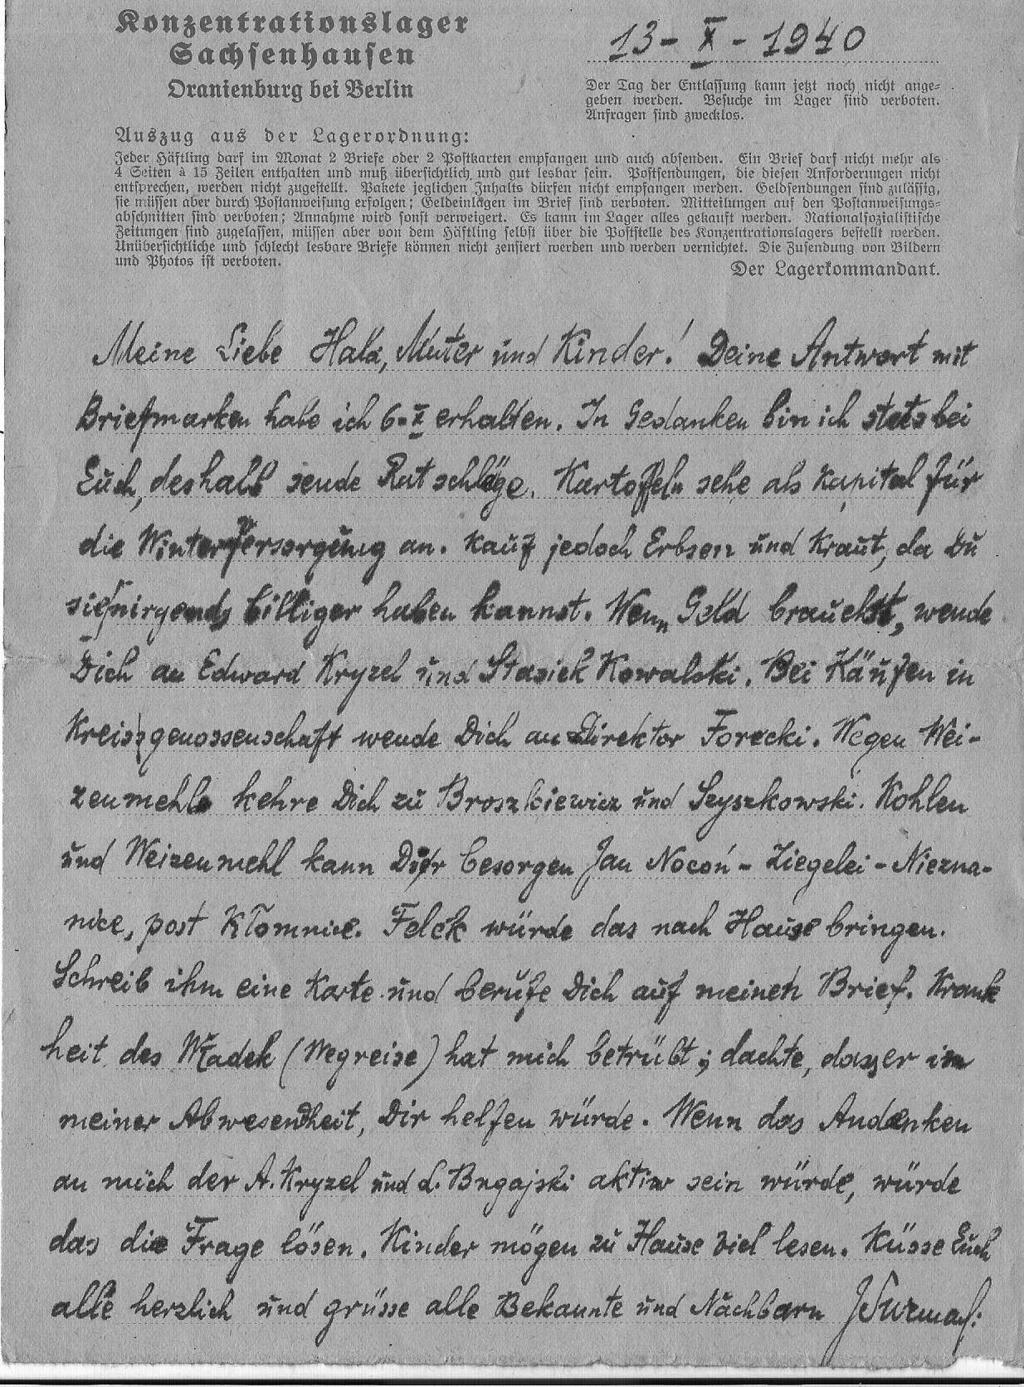 Konzentrationslager
Sachsenhausen
Oranienburg bei Berlin
13-X-1940
Der Tag der Entlassung kann jetzt noch nicht ange-
geben werden. Besuche im Lager sind verboten.
Anfragen sind zwecklos.
Auszug aus der Lagerordnung:
Jeder Häftling darf im Monat 2 Briefe oder 2 Postkarten empfangen und auch absenden. Ein Brief darf nicht mehr als
4 Seiten à 15 Zeilen enthalten und muß übersichtlich und gut lesbar sein. Postsendungen, die diesen Anforderungen nicht
entsprechen, werden nicht zugestellt. Pakete jeglichen Inhalts dürfen nicht empfangen werden. Geldsendungen sind zulässig,
sie müssen aber durch Postanweisung erfolgen; Geldeinlagen im Brief sind verboten. Mitteilungen auf den Postanweisungs-
abschnitten sind verboten; Annahme wird sonst verweigert. Es kann im Lager alles gekauft werden. Nationalsozialistische
Zeitungen sind zugelassen, müssen aber von dem Häftling selbst über die Poststelle des Konzentrationslagers bestellt werden.
Unübersichtliche und schlecht lesbare Briefe können nicht zensiert werden und werden vernichtet. Die Zusendung von Bildern
und Photos ist verboten.
Der Lagerkommandant.
Meine Liebe Hala, Muter und Kinder! Deine Antwort mit
Briefmarken habe ich 6-X erhalten. In Gedanken bin ich stets bei
Euch, deshalb sende Ratschläge. Kartoffeln sehe als Kapital für
die Winterversorgung an. Kauf jedoch Erbsen und Kraut, da Du
sie nirgends billiger haben kannst. Wenn Geld brauchst, wende
Dich an Edward Kryzel und Stasiek Kowalski. Bei Käufen in
Kreisgenossenschaft wende Dich an Direktor Forecki. Wegen Wei-
zenmehle kehre Dich zu Broszkiewicz und Szyszkowski. Kohlen
und Weizenmehl kann Dir besorgen Jan Nocoń - Ziegelei - Niezna-
nice, post Kłomnice. Felek würde das nach Hause bringen.
Schreib ihm eine Karte und berufe Dich auf meinen Brief. Krank
heit des Władek (Wegreise) hat mich betrübt; dachte, dass er in
meiner Abwesenheit, Dir helfen würde. Wenn das Andenken
an mich der A. Kryzel und L. Bugajski aktiw sein würde, würde
das die Frage lösen. Kinder mögen zu Hause viel lesen. Küsse Euch
alle herzlich und grüsse alle Bekannte und Nachbarn